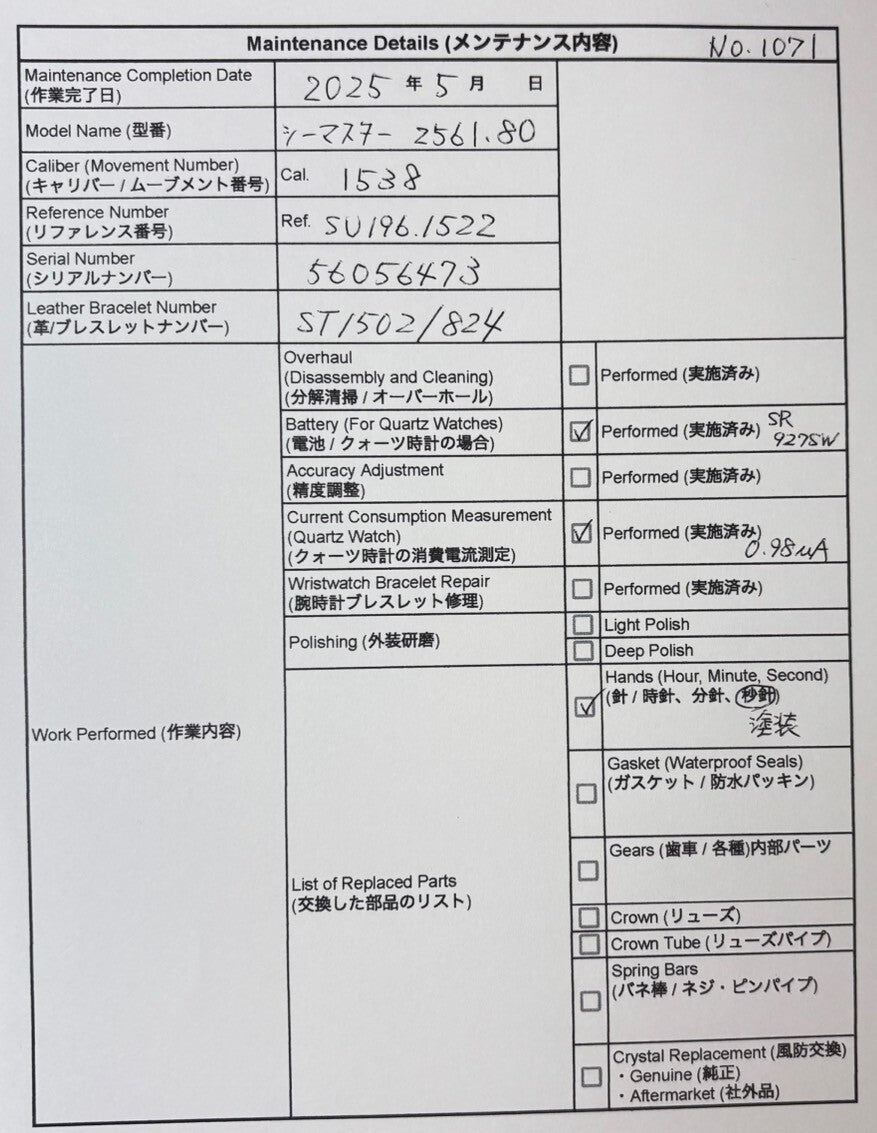 Maintenance Details (メンテナンス内容) No.1071
Maintenance Completion Date
(作業完了日)
2025 年 5 月 日
Model Name (型番)
シーマスター 2561.80
Caliber (Movement Number)
(キャリバー / ムーブメント番号)
Cal. 1538
Reference Number
(リファレンス番号)
Ref. SU196.1522
Serial Number
(シリアルナンバー)
56056473
Leather Bracelet Number
(革/ブレスレットナンバー)
ST1502/824
Work Performed (作業内容)
Overhaul
(Disassembly and Cleaning)
(分解清掃 / オーバーホール)
Performed (実施済み)
Battery (For Quartz Watches)
(電池 / クォーツ時計の場合)
Performed (実施済み) SR
927SW
Accuracy Adjustment
(精度調整)
Performed (実施済み)
Current Consumption Measurement
(Quartz Watch)
(クォーツ時計の消費電流測定)
Performed (実施済み)
0.98uA
Wristwatch Bracelet Repair
(腕時計ブレスレット修理)
Performed (実施済み)
Polishing (外装研磨)
Light Polish
Deep Polish
List of Replaced Parts
(交換した部品のリスト)
Hands (Hour, Minute, Second)
(針 / 時針、分針、秒針)
塗装
Gasket (Waterproof Seals)
(ガスケット / 防水パッキン)
Gears (歯車 / 各種)内部パーツ
Crown (リューズ)
Crown Tube (リューズパイプ)
Spring Bars
(バネ棒 / ネジ・ピンパイプ)
Crystal Replacement (風防交換)
・Genuine (純正)
・Aftermarket (社外品)